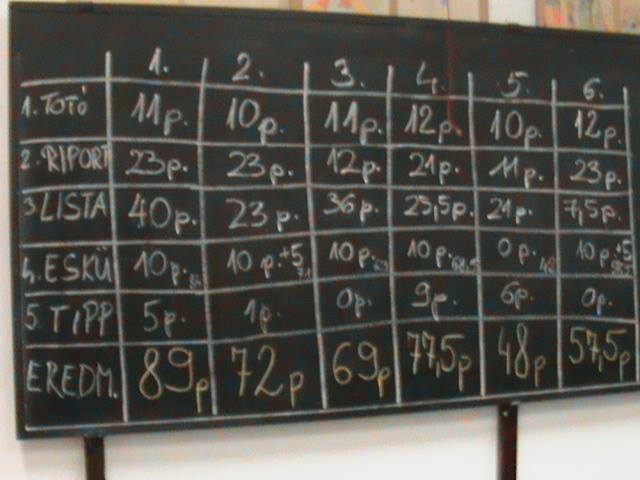 1. 2. 3. 4. 5. 6.
1. TOTÓ 11p. 10p. 11p. 12p. 10p. 12p.
2. RIPORT 23p. 23p. 12p. 21p. 11p. 23p.
3 LISTA 40p. 23p. 36p. 25,5p. 21p. 7,5p.
4. ESKÜ 10p. 10 p.+5 10p. 10p. 0p. 10p.+5
5. TIPP 5p. 1p. 0p. 9p. 6p. 0p.
EREDM. 89p 72p 69p 77,5p 48p 57,5p